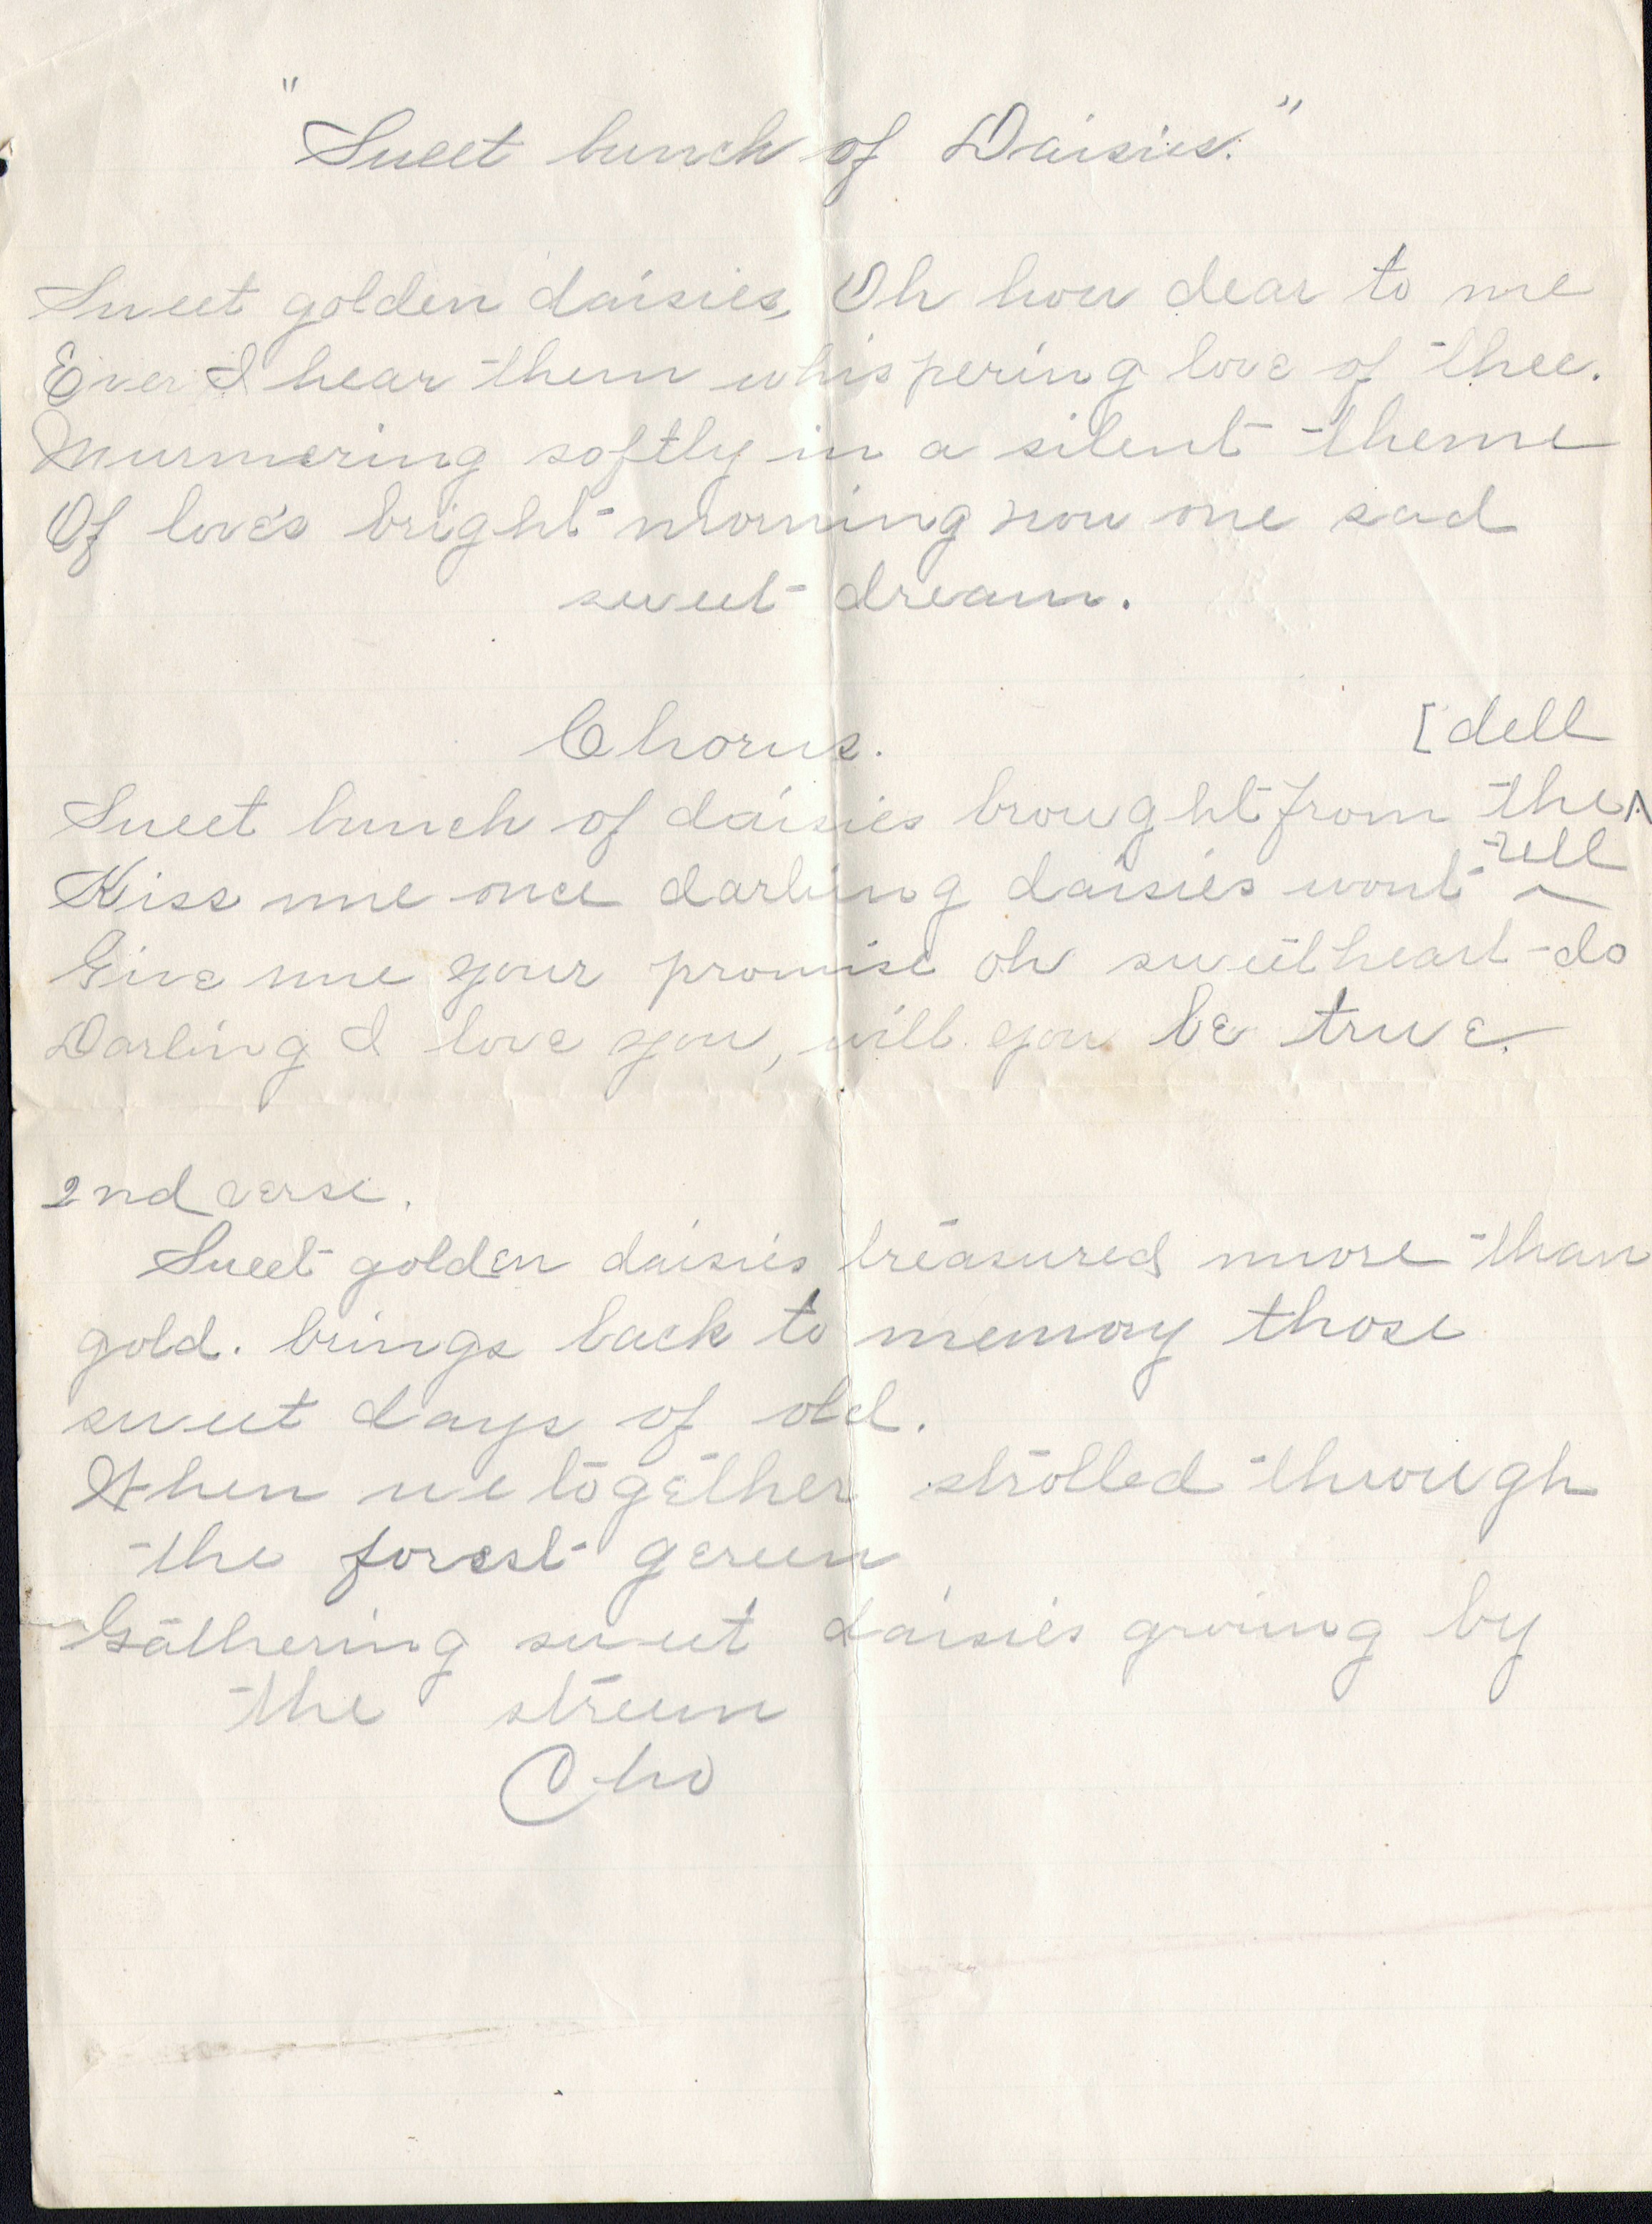 "Sweet bunch of Daisies."
Sweet golden daisies, Oh how dear to me
Ever I hear them whispering love of thee.
Murmering softly in a silent theme
Of love's bright morning now one sad
sweet dream.
Chorus. [dell
Sweet bunch of daisies brought from the ^
Kiss me once darling daisies wont ^ tell
Give me your promise oh sweetheart do
Darling I love you, will you be true.
2nd verse.
Sweet golden daisies treasured more than
gold. brings back to memory those
sweet days of old.
When we together strolled through
the forest gereen
Gathering sweet daisies growing by
the streem
Cho